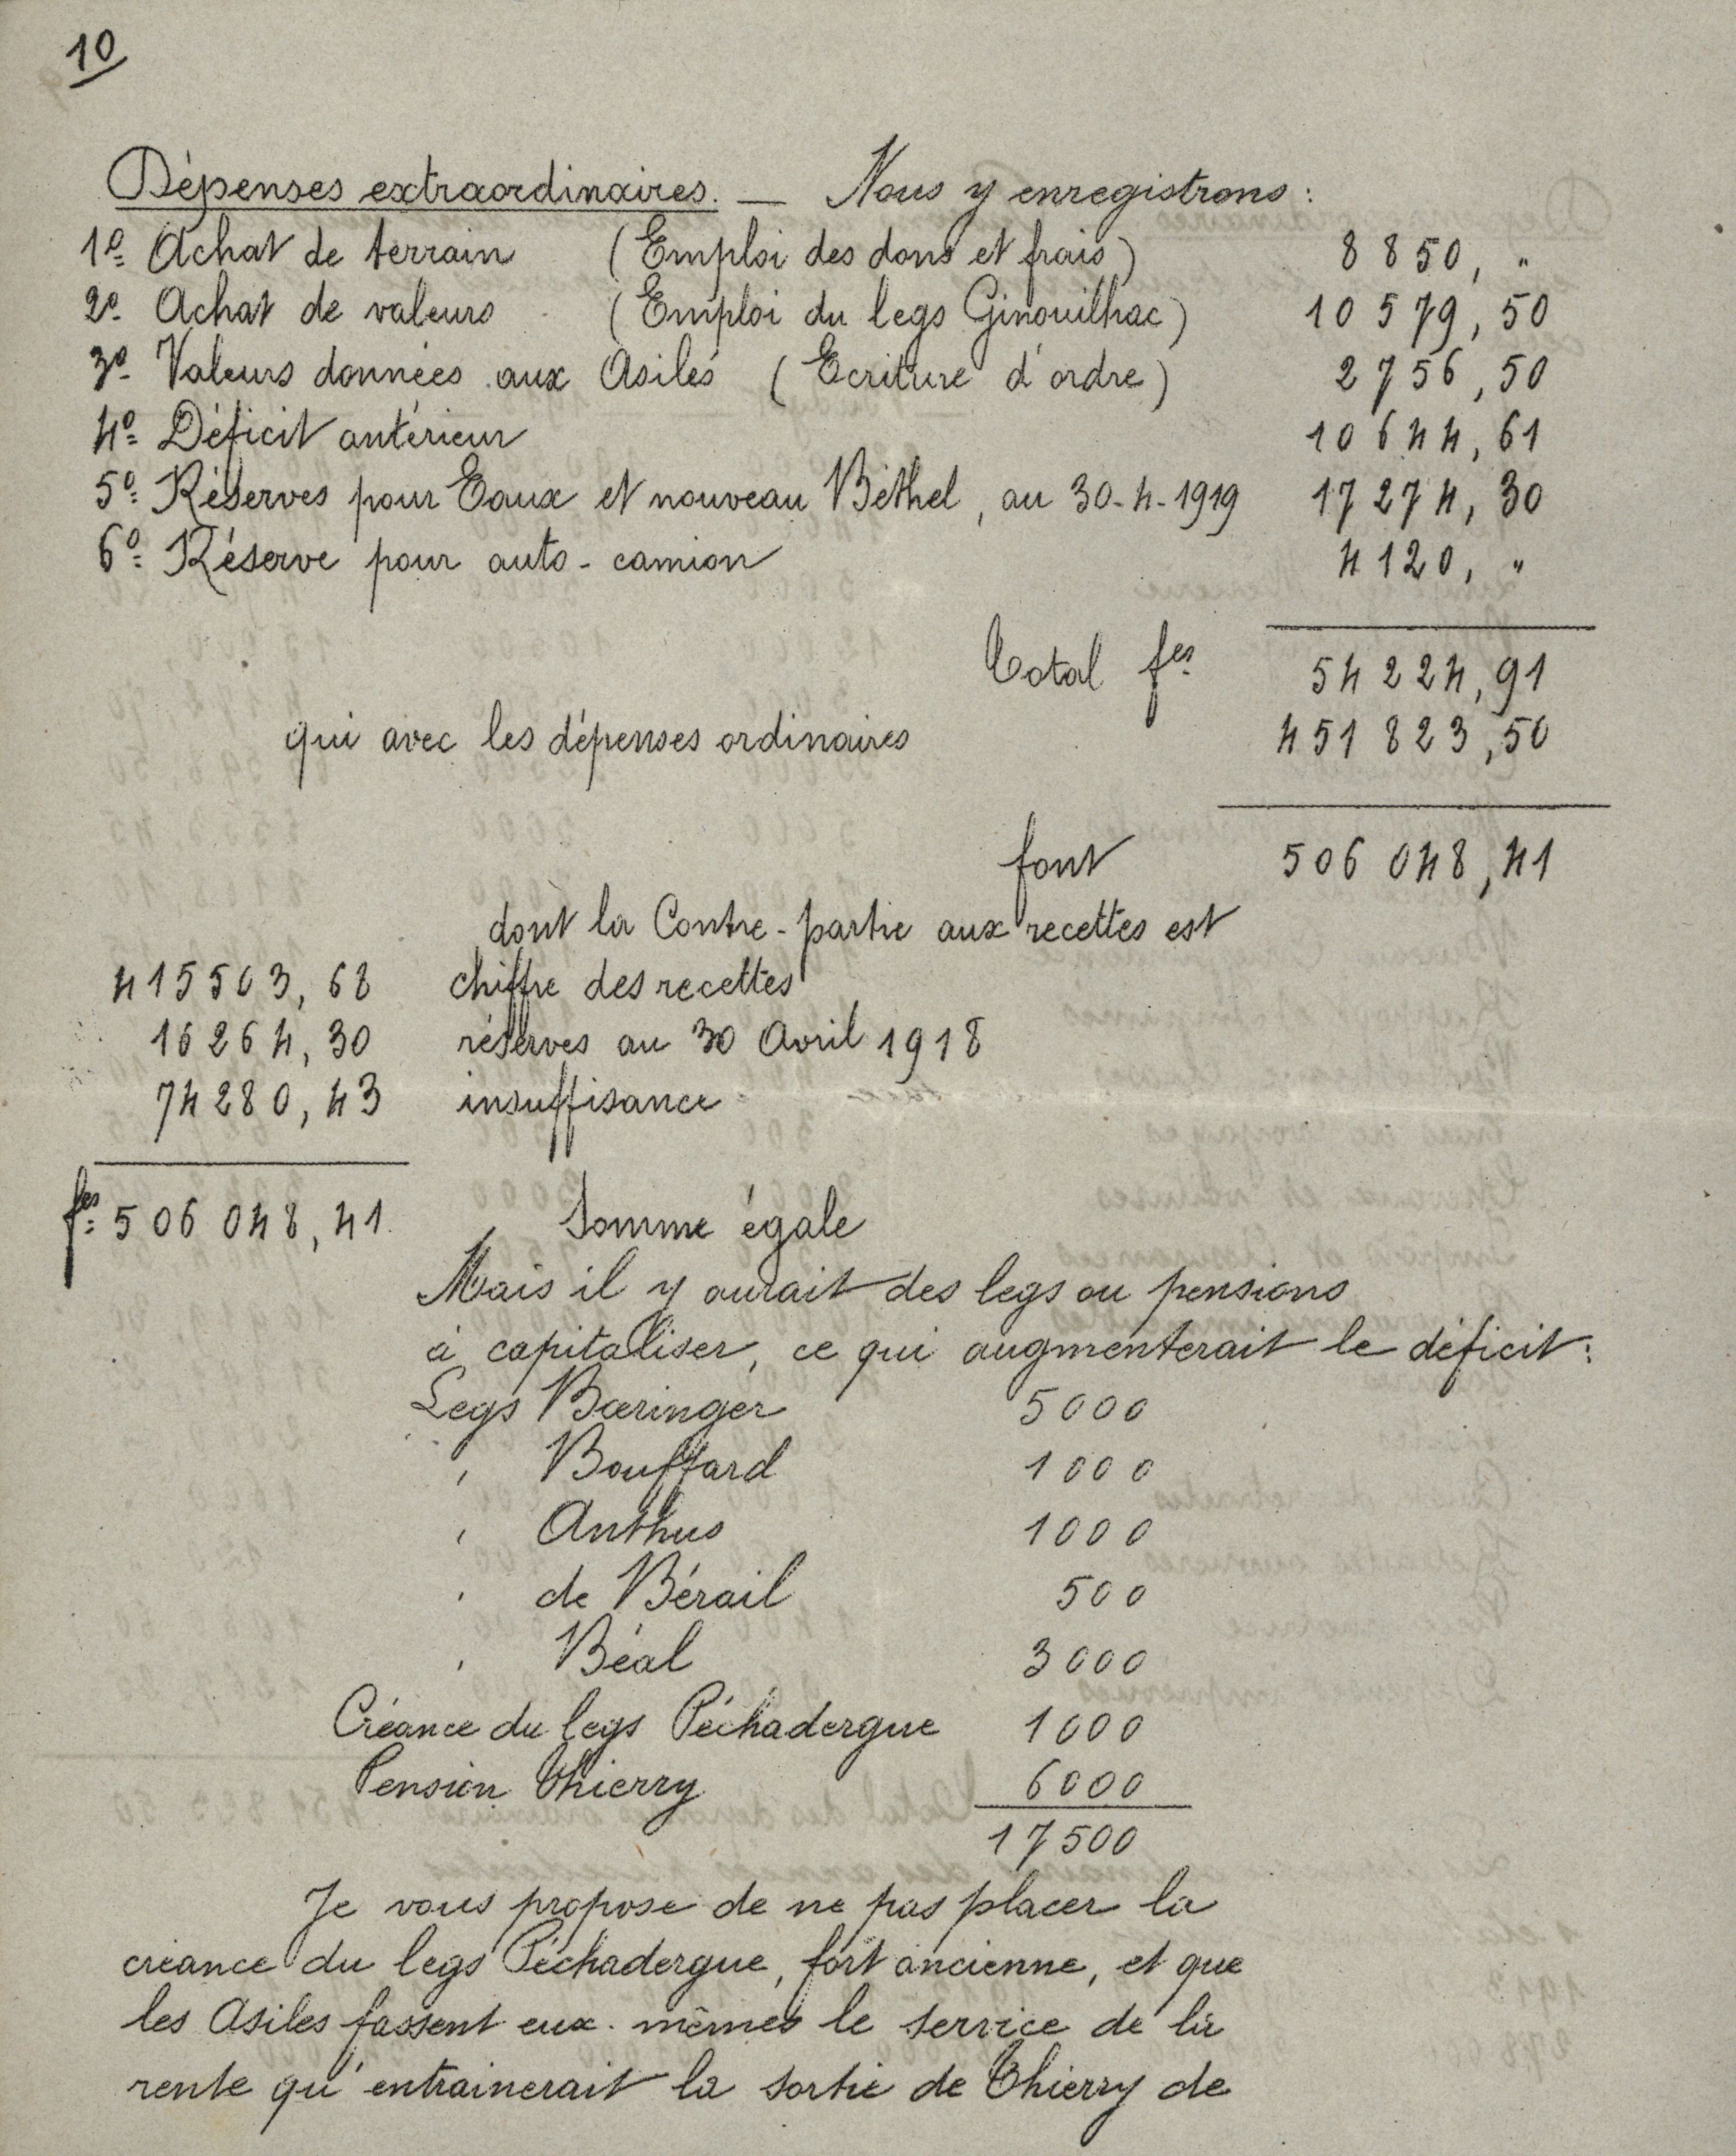 10
Dépenses extraordinaires. — Nous y enregistrons :
1º Achat de terrain (Emploi des dons et frais) 8 850, "
2º Achat de valeurs (Emploi du legs Ginouilhac) 10 579, 50
3º Valeurs données aux Asiles (Ecriture d'ordre) 2 756, 50
4º Déficit antérieur 10 644, 61
5º Réserves pour Eaux et nouveau Béthel, au 30-4-1919 17 274, 30
6º Réserve pour auto-camion 4 120, "
Total fcs 54 224, 91
qui avec les dépenses ordinaires 451 823, 50
font 506 048, 41
dont la Contre-partie aux recettes est
415 503, 68 chiffre des recettes
16 264, 30 réserves au 30 Avril 1918
74 280, 43 insuffisance
fcs 506 048, 41. Somme égale
Mais il y aurait des legs ou pensions
à capitaliser, ce qui augmenterait le déficit :
Legs Bœringer 5000
" Bouffard 1000
" Anthus 1000
" de Bérail 500
" Béal 3000
Créance du legs Péchadergue 1000
Pension Thierry 6000
17500
Je vous propose de ne pas placer la
créance du legs Péchadergue, fort ancienne, et que
les Asiles fassent eux-mêmes le service de la
rente qu'entrainerait la sortie de Thierry de